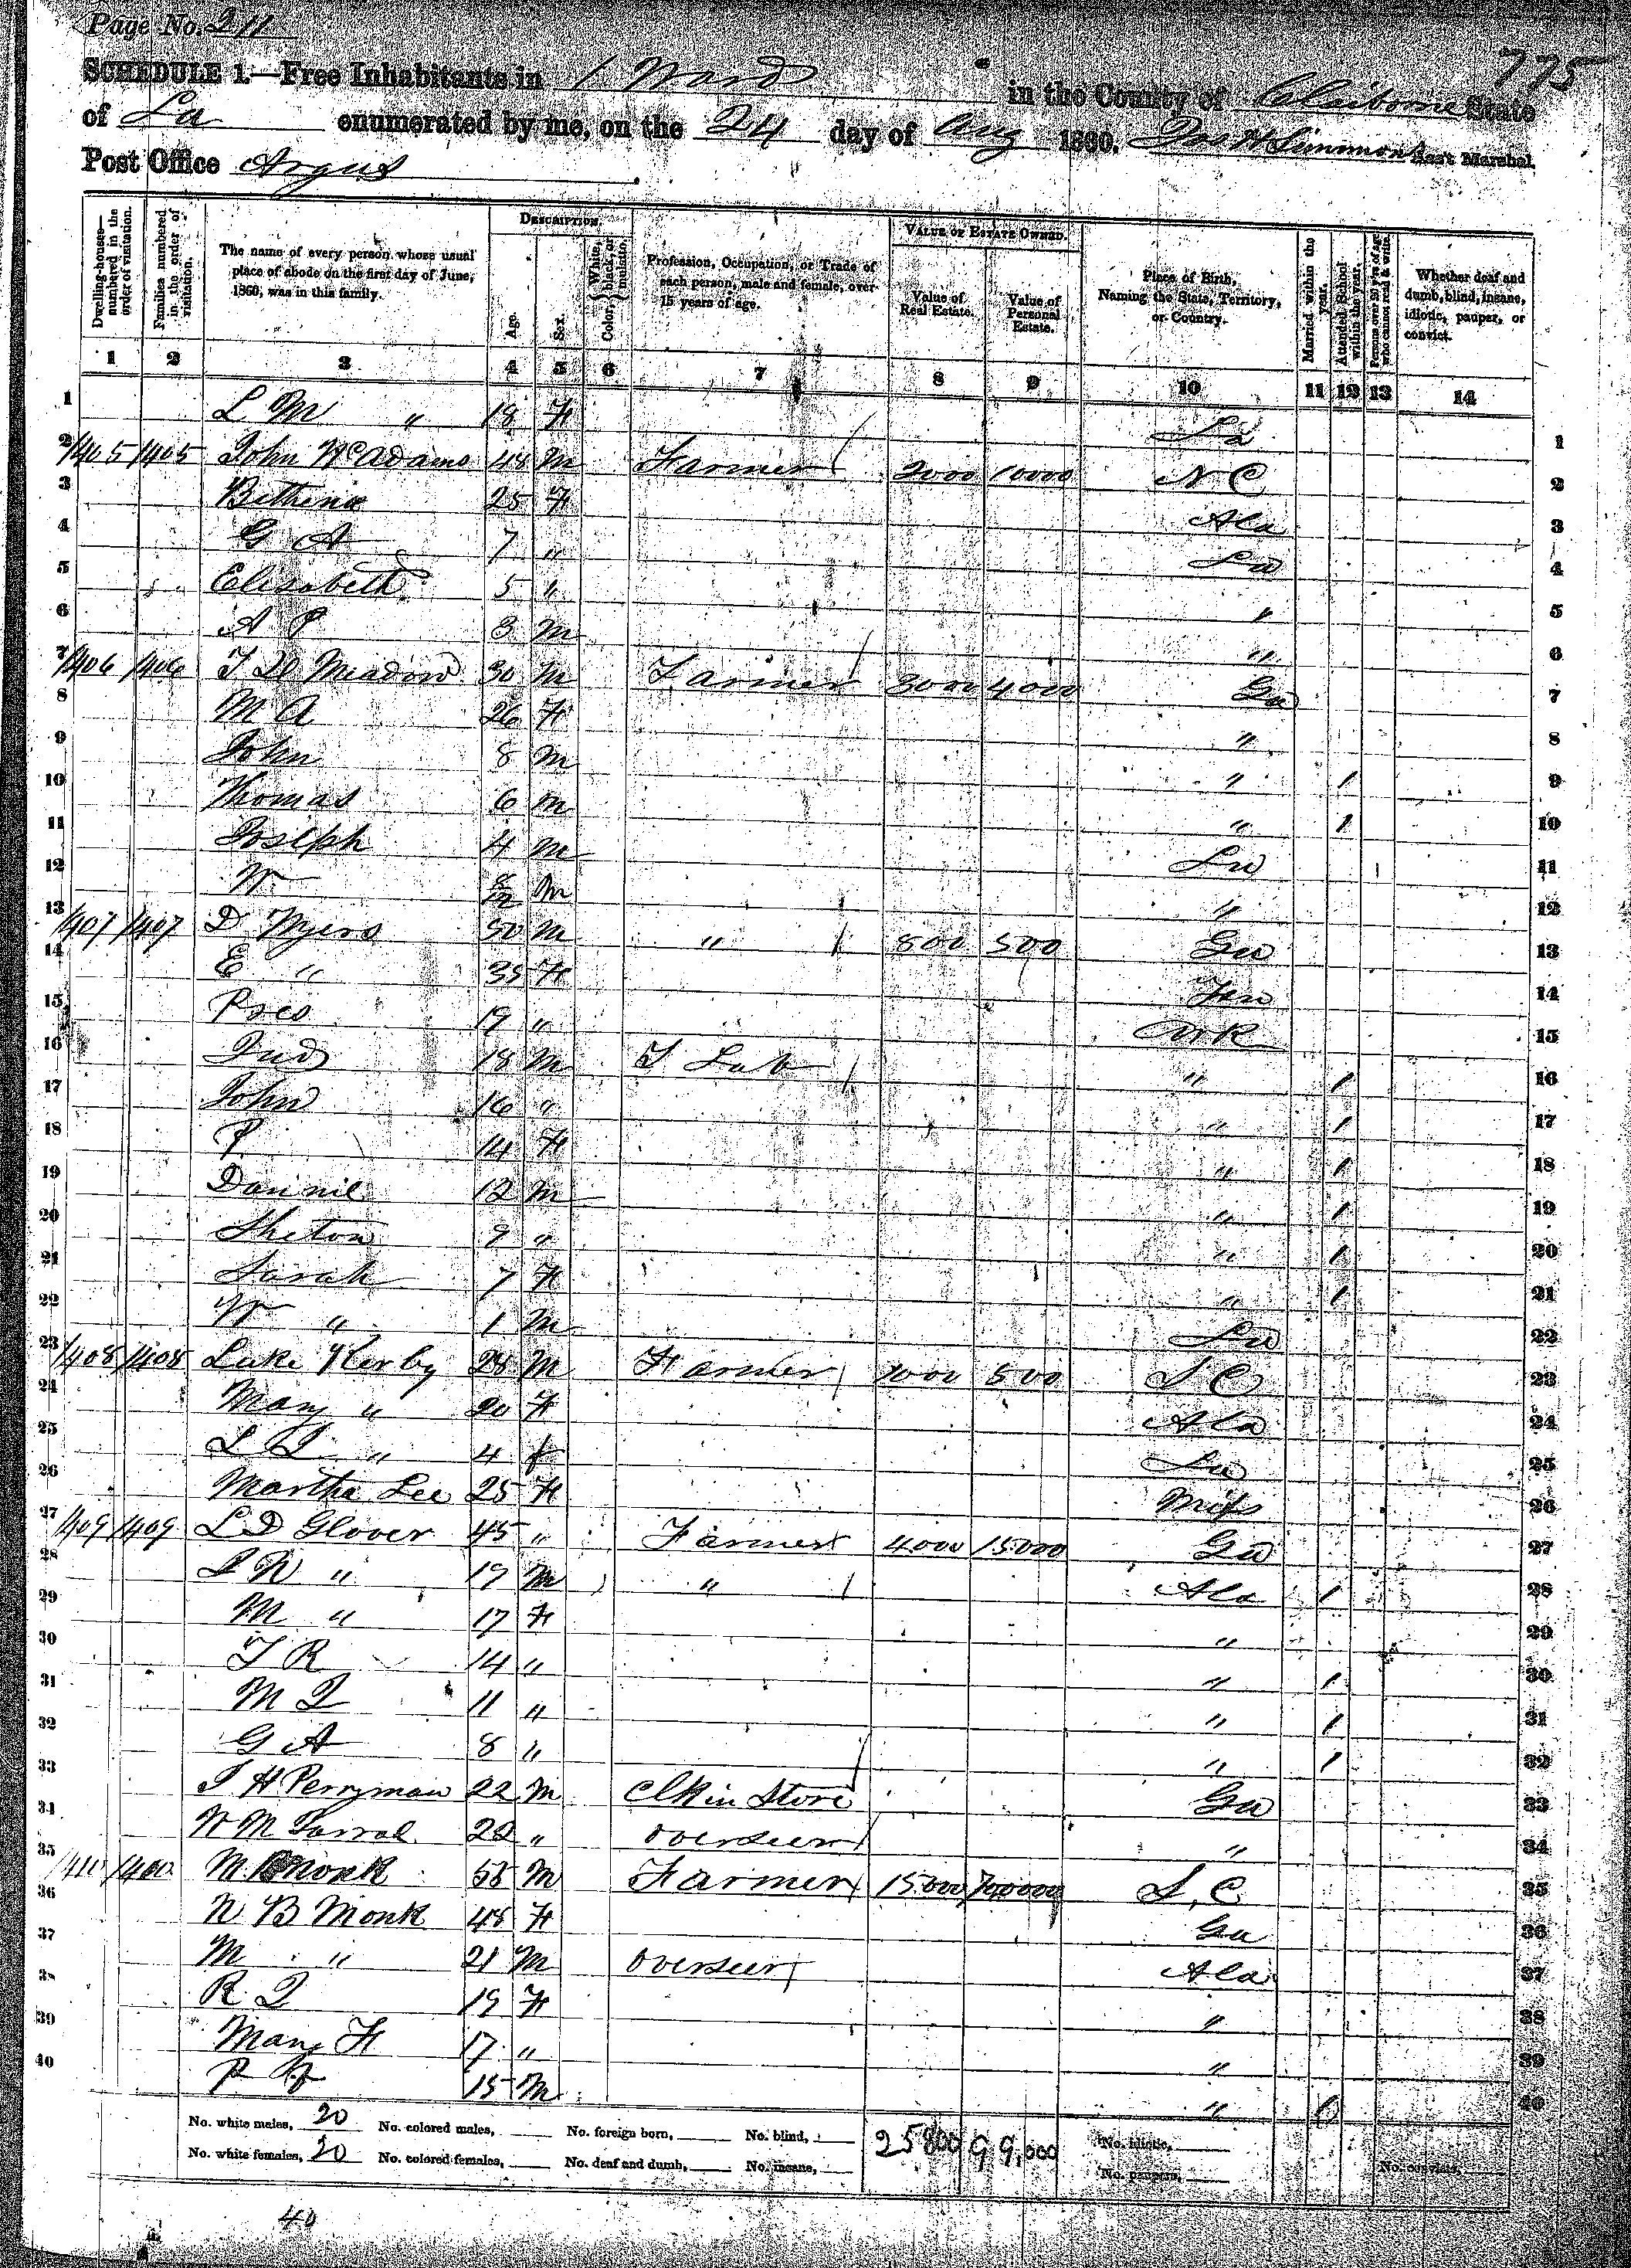 Page No. 211
775
SCHEDULE 1.—Free Inhabitants in 1 Ward in the County of Claiborne State
of La enumerated by me, on the 24 day of Aug 1860. Jas H Simmons Ass't Marshal.
Post Office Argus
Dwelling-houses—numbered in the order of visitation.
Families numbered in the order of visitation.
The name of every person whose usual place of abode on the first day of June, 1860, was in this family.
DESCRIPTION.
Age.
Sex.
Color, White, black, or mulatto.
Profession, Occupation, or Trade of each person, male and female, over 15 years of age.
VALUE OF ESTATE OWNED.
Value of Real Estate.
Value of Personal Estate.
Place of Birth, Naming the State, Territory, or Country.
Married within the year.
Attended School within the year.
Persons over 20 y'rs of age who cannot read & write.
Whether deaf and dumb, blind, insane, idiotic, pauper, or convict.
1 2 3 4 5 6 7 8 9 10 11 12 13 14
1 L M " 18 F La 1
2 1405 1405 John McAdams 48 M Farmer 2000 10000 N C 2
3 Bethena 25 F Ala 3
4 G A 7 " La 4
5 Elizabeth 5 " " 5
6 A P 3 M " 6
7 1406 1406 T D Meadow 30 M Farmer 3000 4000 Ga 7
8 M A 26 F " 8
9 John 8 M " 1 9
10 Thomas 6 M " 1 10
11 Joseph 4 M La 11
12 W M " 12
13 1407 1407 D Myers 50 M " 800 500 Ga 13
14 E " 35 F Ten 14
15 19 " Ark 15
16 18 M " 1 16
17 John 16 " " 1 17
18 P 14 F " 1 18
19 Dannil 12 M " 1 19
20 Sheton 9 " " 1 20
21 Sarah 7 F " 1 21
22 W " 1 M La 22
23 1408 1408 Luke Kerby 28 M Farmer 1000 500 S C 23
24 Mary " 20 F Ala 24
25 L J " 4 f La 25
26 Martha Lee 25 F Miss 26
27 1409 1409 L D Glover 45 " Farmer 4000 15000 Ga 27
28 19 M " Ala 1 28
29 M " 17 F " 29
30 T R 14 " " 1 30
31 M J 11 " " 1 31
32 G A 8 " " 1 32
33 J H Perryman 22 M Clk in Store Ga 33
34 W M 22 " overseer " 34
35 1410 1400 Monk 58 M Farmer 15000 70000 S, C 35
36 N B Monk 48 F Ga 36
37 M " 21 M overseer Ala 37
38 R J 19 F " 38
39 Mary F 17 " " 39
40 15 M " 1 40
No. white males, 20 No. colored males, No. foreign born, No. blind, 25800 99,000 No. idiotic,
No. white females, 20 No. colored females, No. deaf and dumb, No. insane, No. paupers, No. convicts,
40